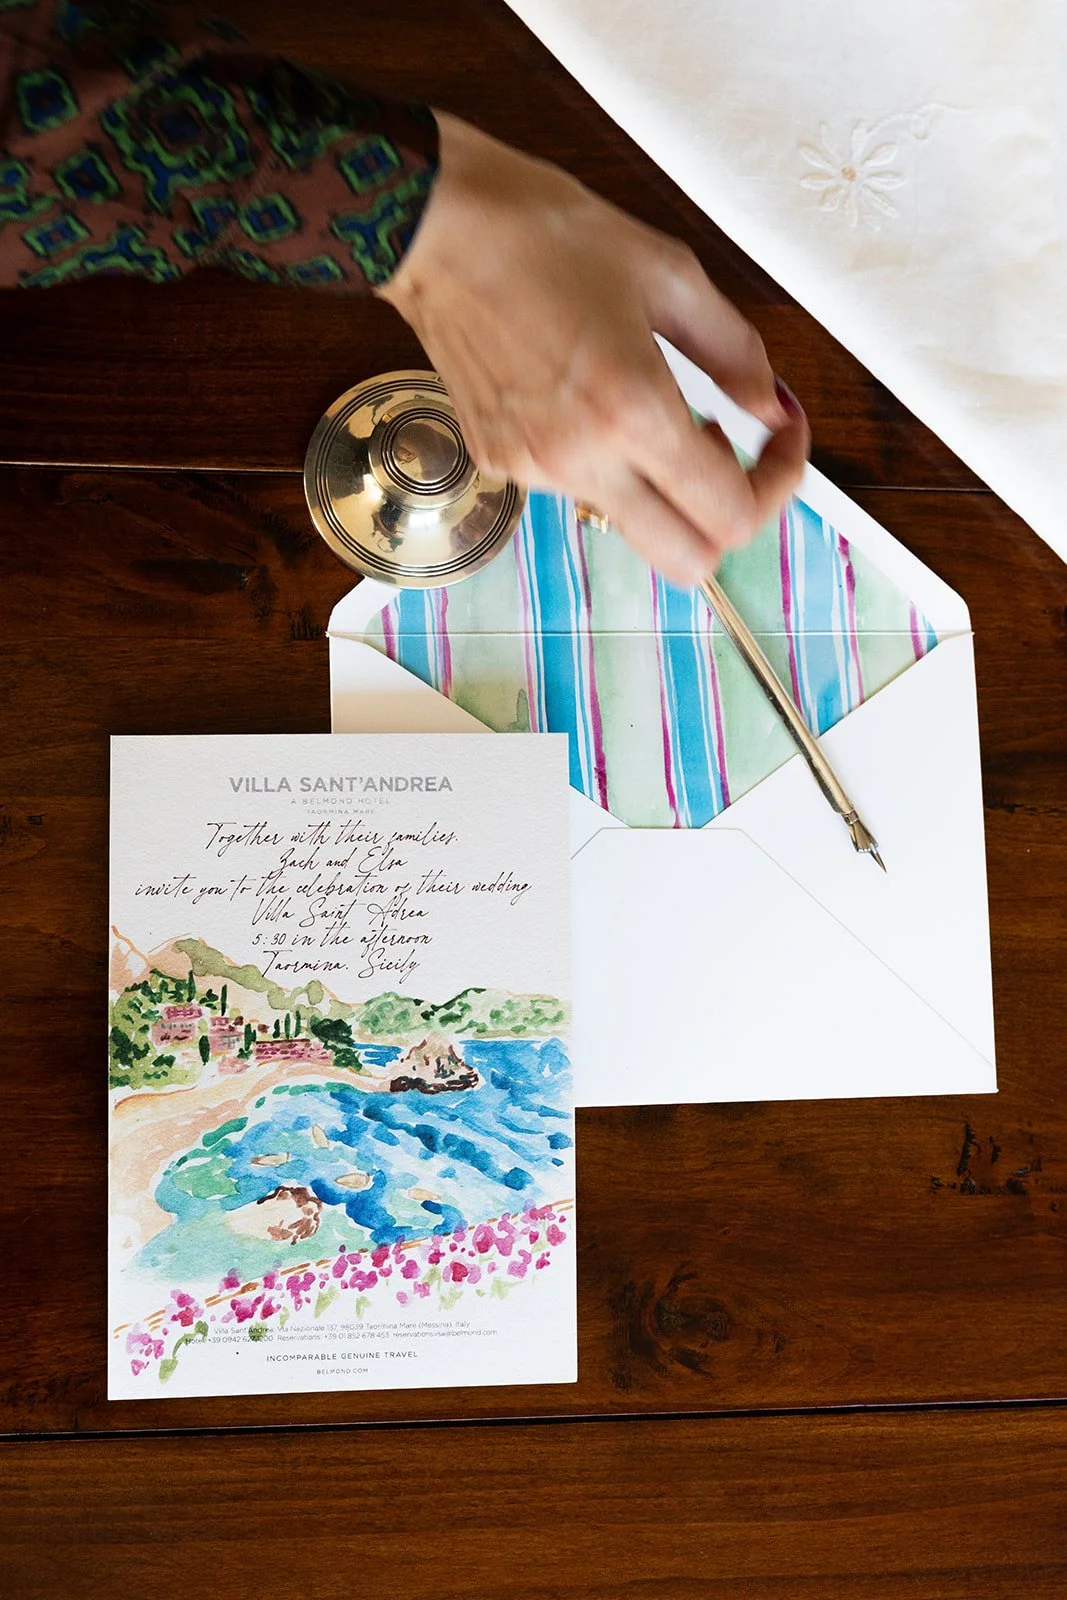 VILLA SANT'ANDREA
A BELMOND HOTEL
TAORMINA MARE
Together with their families.
Zach and Elsa
invite you to the celebration of their wedding
Villa Saint Adrea
5:30 in the afternoon
Taormina. Sicily
Villa Sant'Andrea: Via Nazionale 137, 98039 Taormina Mare (Messina), Italy
Hotel: +39 0942 6271200 Reservations: +39 01 852 678 453 reservations.vsa@belmond.com
INCOMPARABLE GENUINE TRAVEL
BELMOND.COM